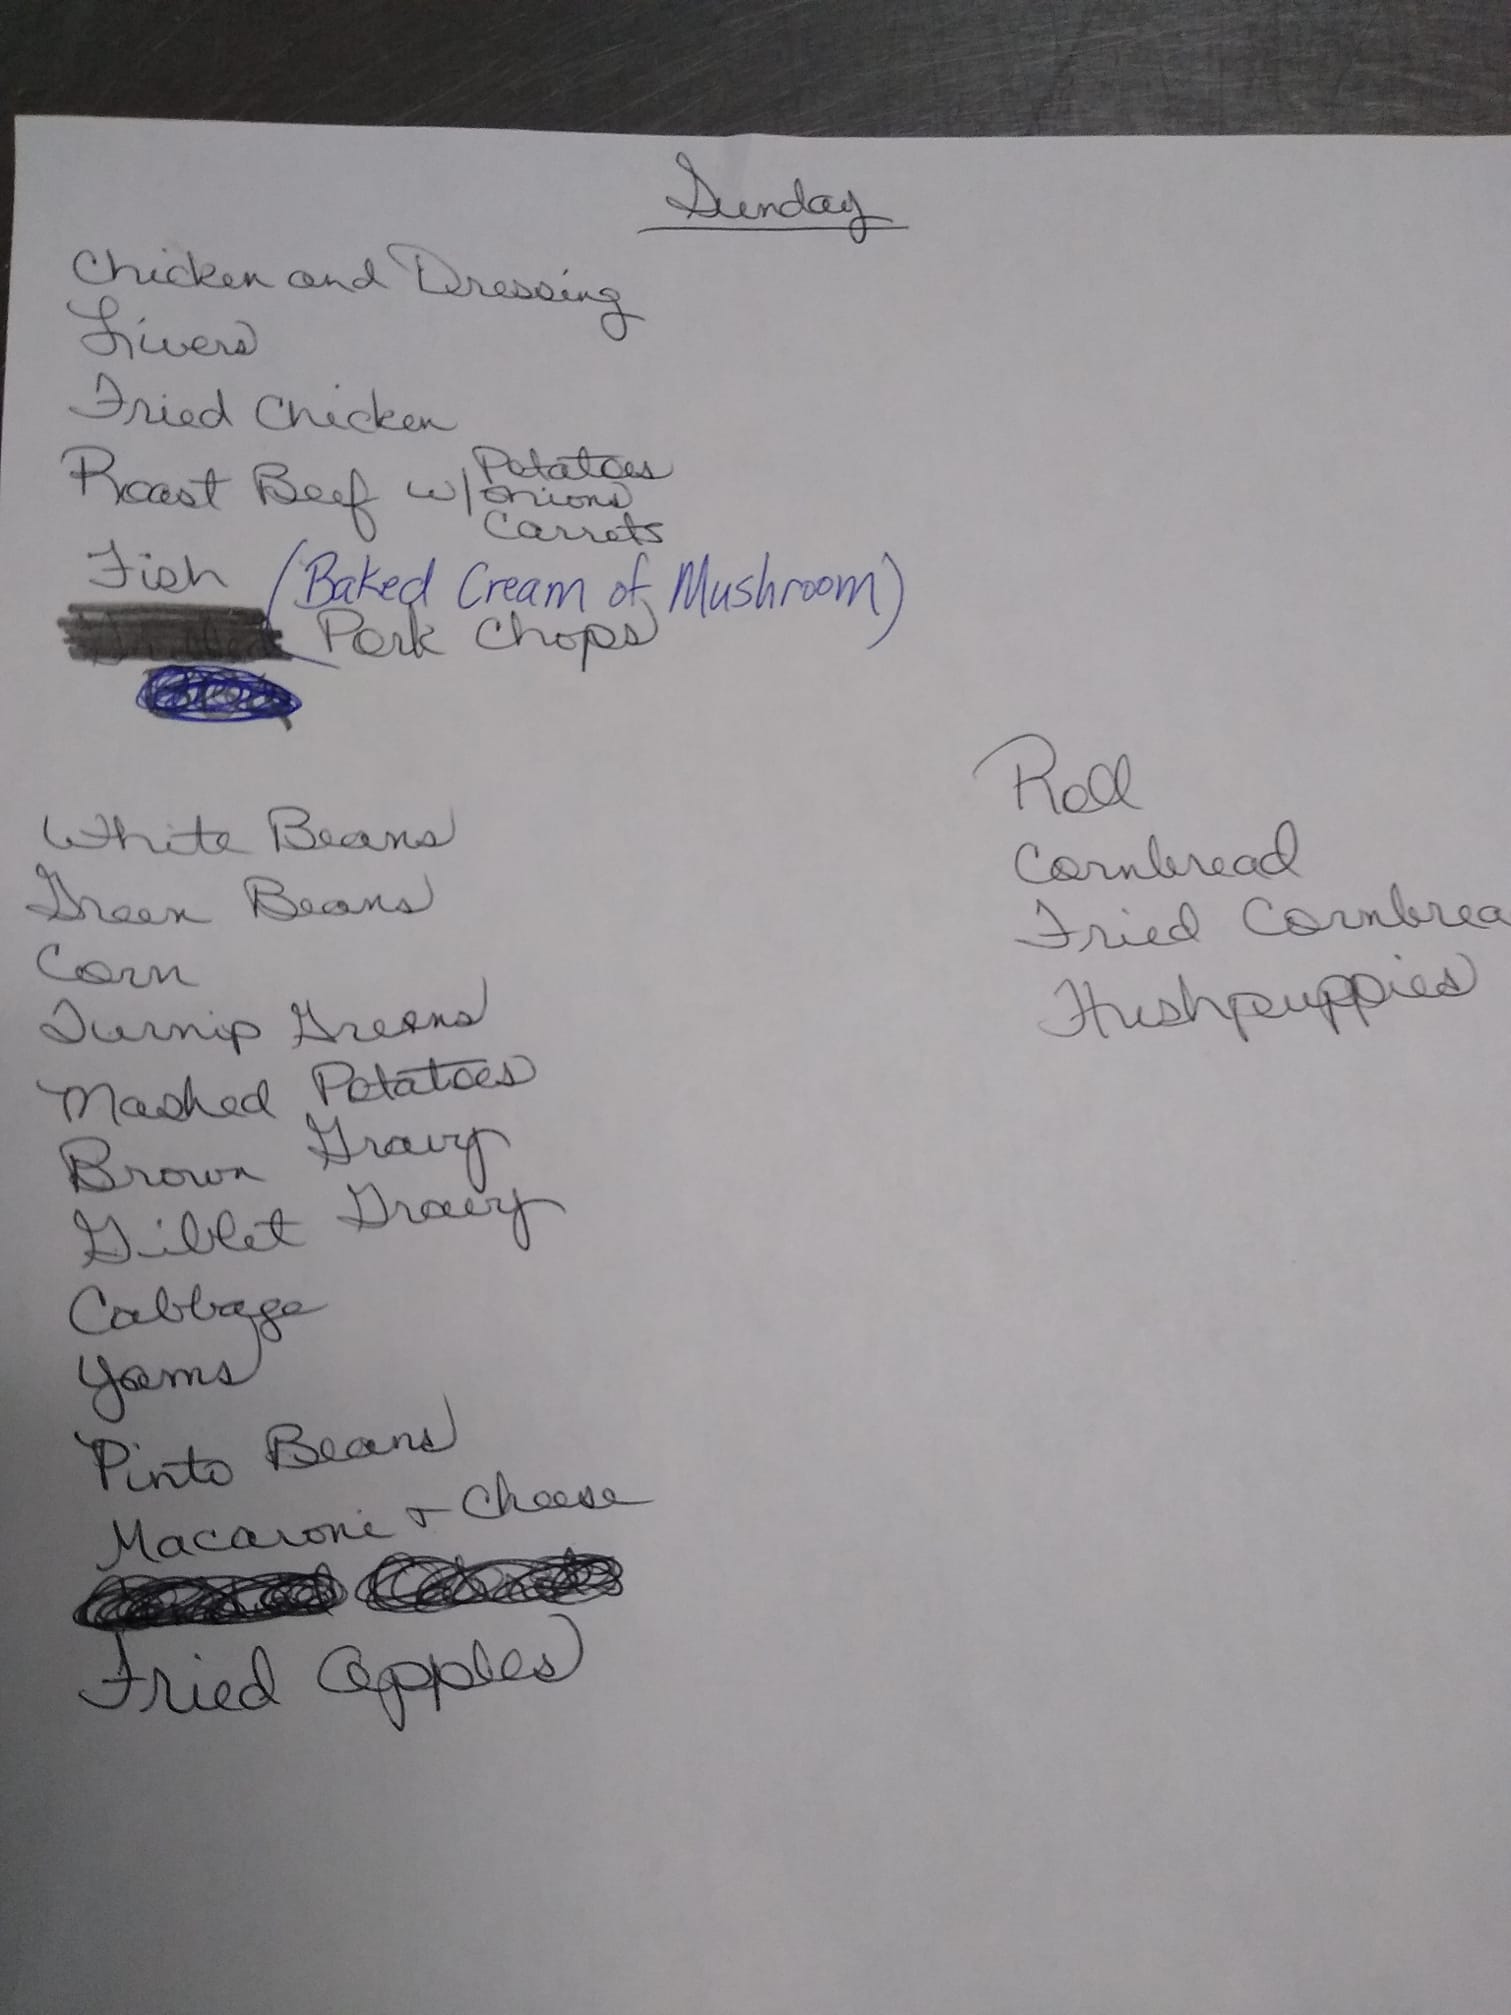 Sunday
Chicken and Dressing
Livers
Fried Chicken
Roast Beef w/ Potatoes
Onions
Carrots
Fish (Baked Cream of Mushroom)
Pork Chops
White Beans
Green Beans
Corn
Turnip Greens
Mashed Potatoes
Brown Gravy
Giblet Gravy
Cabbage
Yams
Pinto Beans
Macaroni + Cheese
Fried Apples
Roll
Cornbread
Fried Cornbrea
Hushpuppies